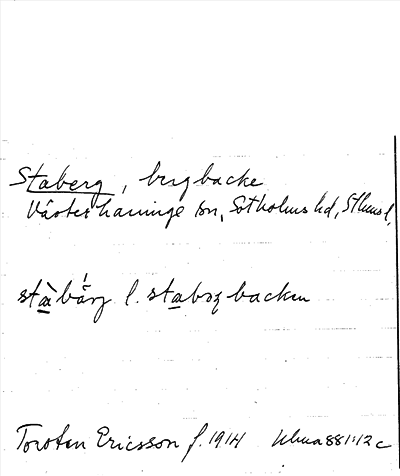 Staberg, bergbacke
Västerhaninge sn, Sotholms hd, Sthms l.
l. backen
Torsten Ericsson f. 1914 Ulma 881:12 c